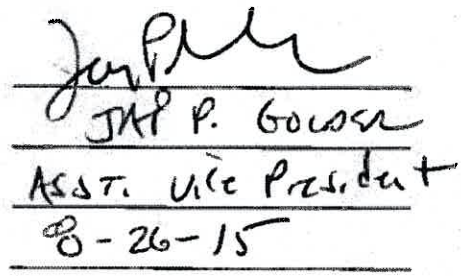 JAY P. GOLDEN
ASST. Vice President
8-26-15